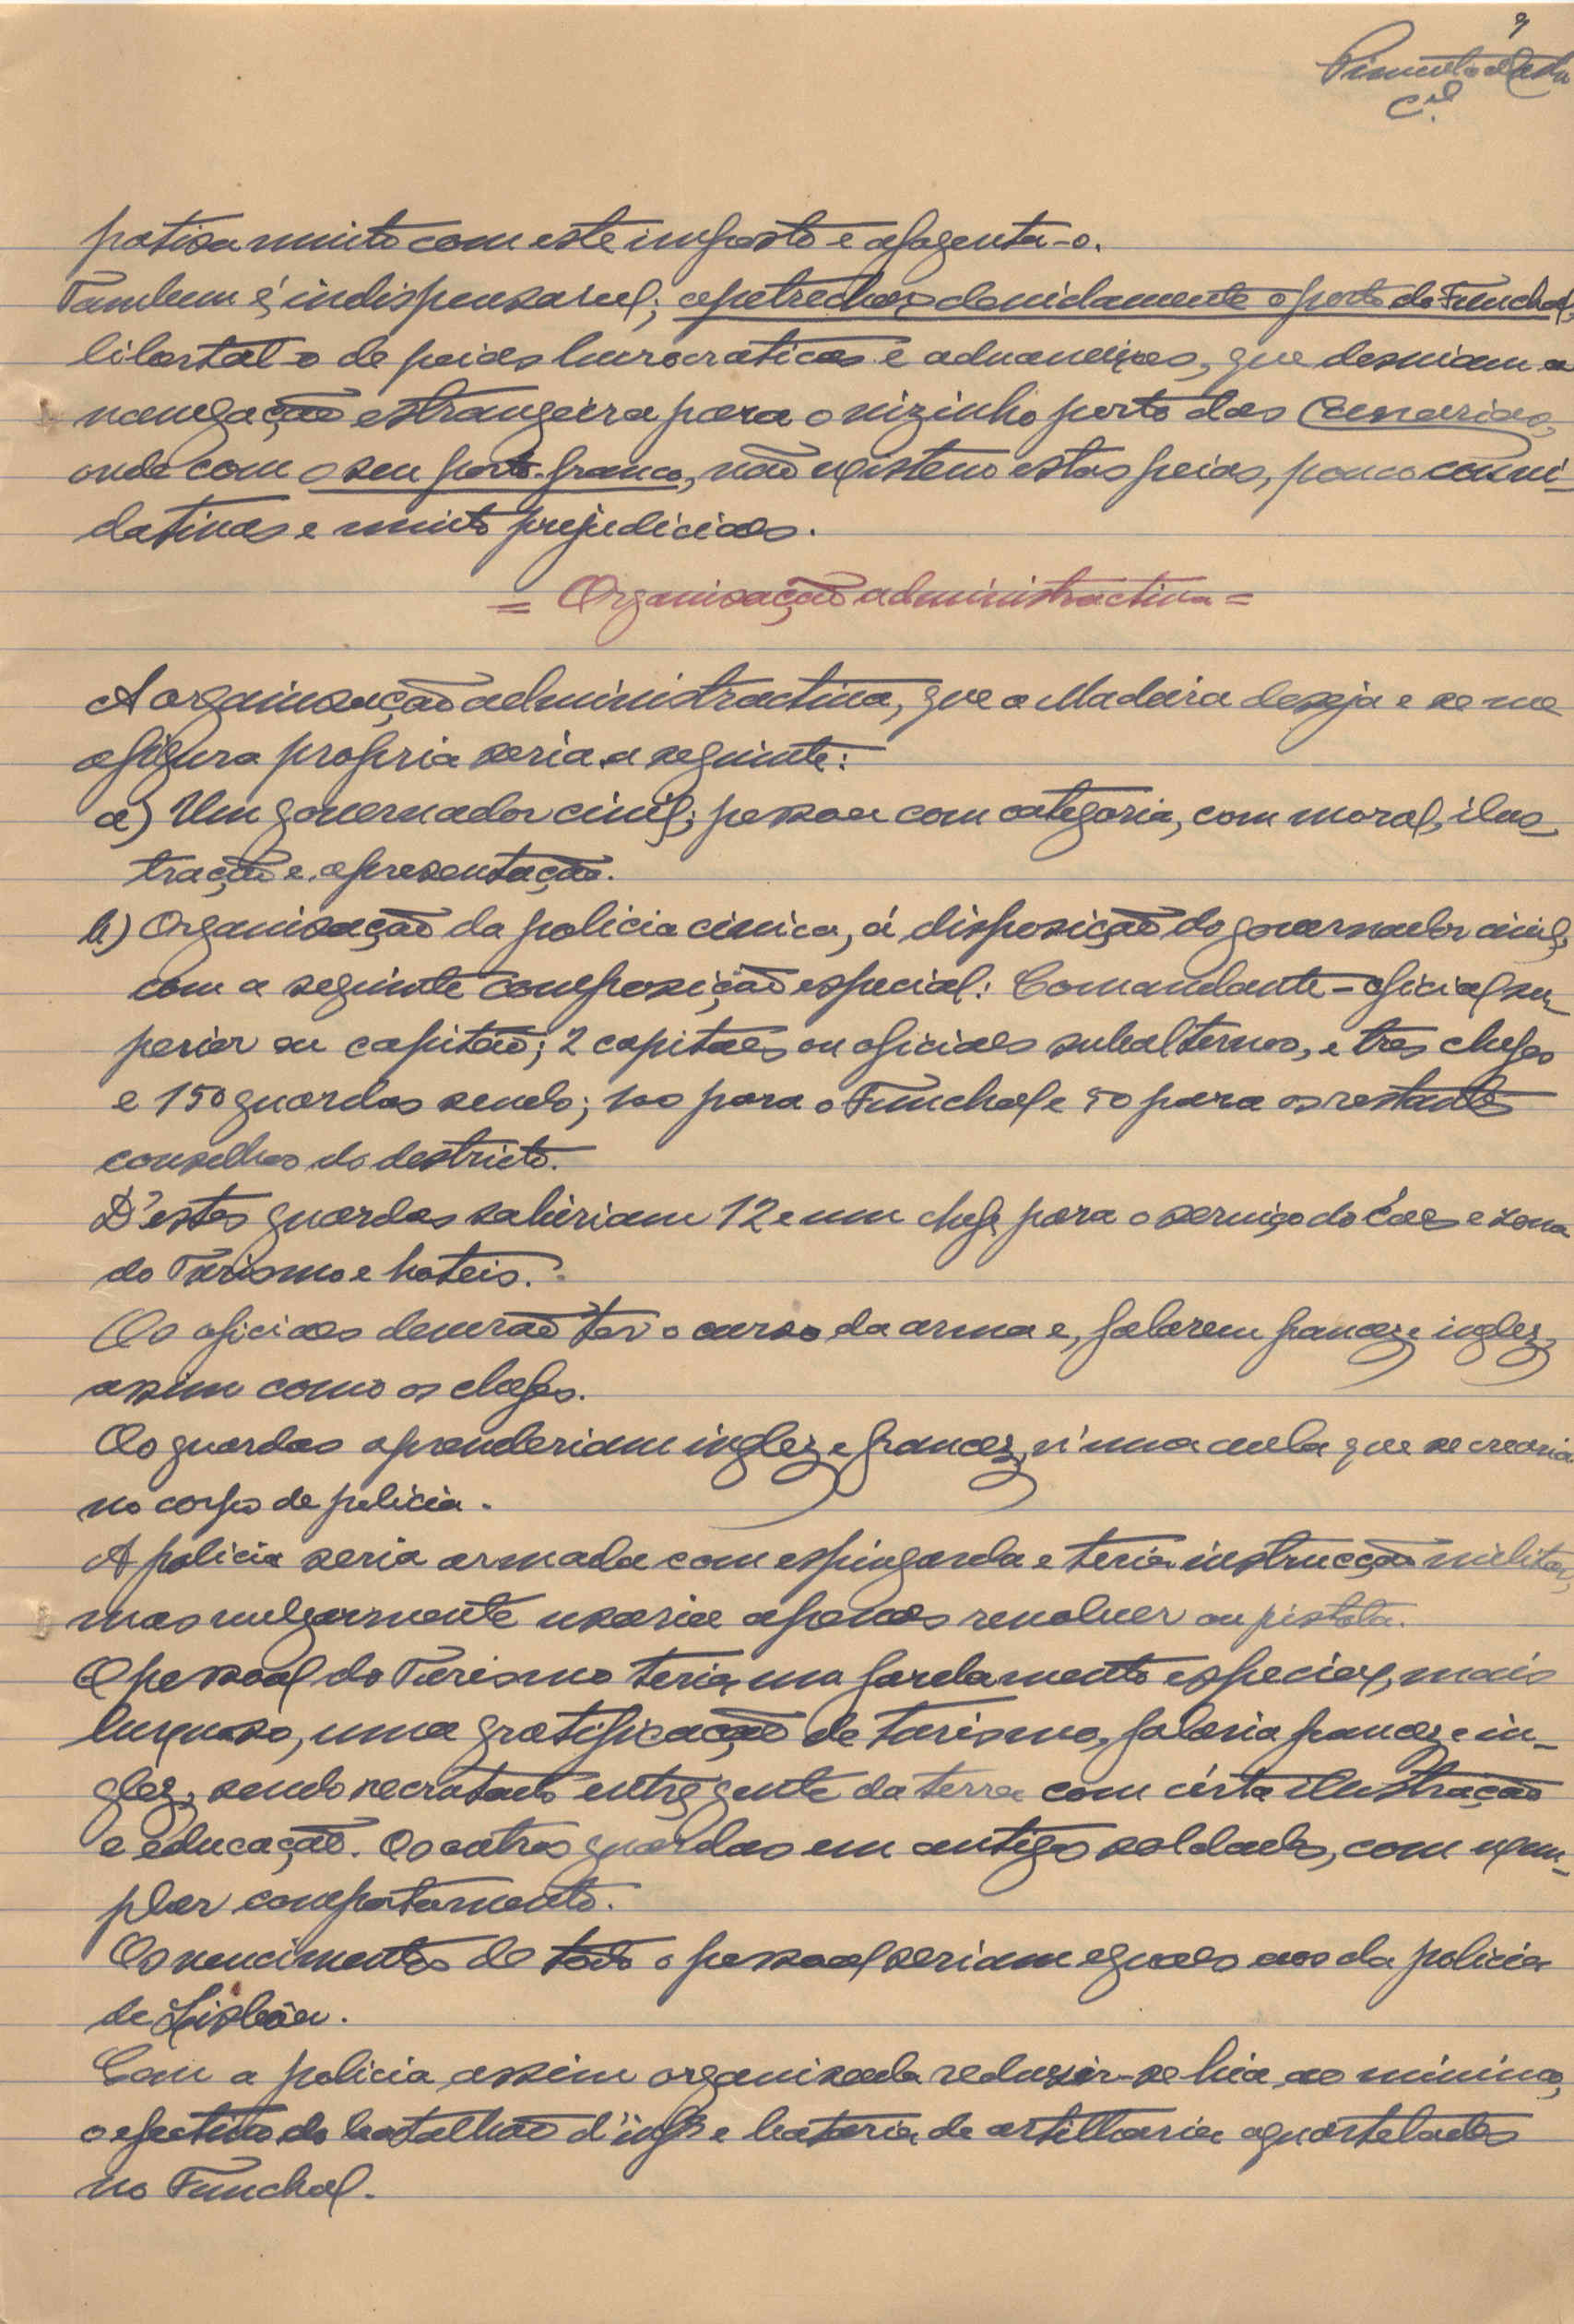 9
Pimenta
C.el
patisa muito com este imposto e afagenta-o.
Tambem é indispensavel; apetrechar devidamente o porto do Funchal,
libertal-o de peias burocraticas e aduaneiras, que desviam a
navegação estrangeira para o vizinho porto das Canarias,
onde com o seu porto-franco, não existem estas peias, pouco convi-
dativas e muito prejudiciaes.
= Organisação administractiva =
A organisação administractiva, que a Madeira deseja e se me
afigura propria seria a seguinte:
a) Um governador civil; pessoa com categoria, com moral, ilus-
tração e apresentação.
b) Organisação da policia civica, á disposição do governador civil,
com a seguinte composição especial: Comandante - oficial su-
perior ou capitão; 2 capitães ou oficiaes subalternos, e tres chefes
e 150 guardas sendo; 100 para o Funchal e 50 para os restantes
conselhos do destricto.
D'estes guardas sahiriam 12 e um chefe para o serviço do cáes e zona
do Turismo e hoteis.
Os oficiaes deverão ter o curso da arma e, falarem francez e inglez,
assim como os chefes.
Os guardas aprenderiam inglez e francez, n'uma aula que se crearia
no corpo de policia.
A policia seria armada com espingarda e teria instrucção militar,
mas vulgarmente usaria apenas revolver ou pistola.
O pessoal do Turismo teria um fardamento especial, mais
luxuoso, uma gratificação de turismo, falaria francez e in-
glez, sendo recrutado entre gente da terra com cérta ilustração
e educação. Os outros guardas em antigos soldados, com exem-
plar comportamento.
Os vencimentos de todo o pessoal seriam eguaes aos da policia
de Lisbôa.
Com a policia assim organisada reduzir-se hia ao minimo,
o efectivo do batalhão d'inf.ª e bateria de artilharia aquartelados
no Funchal.